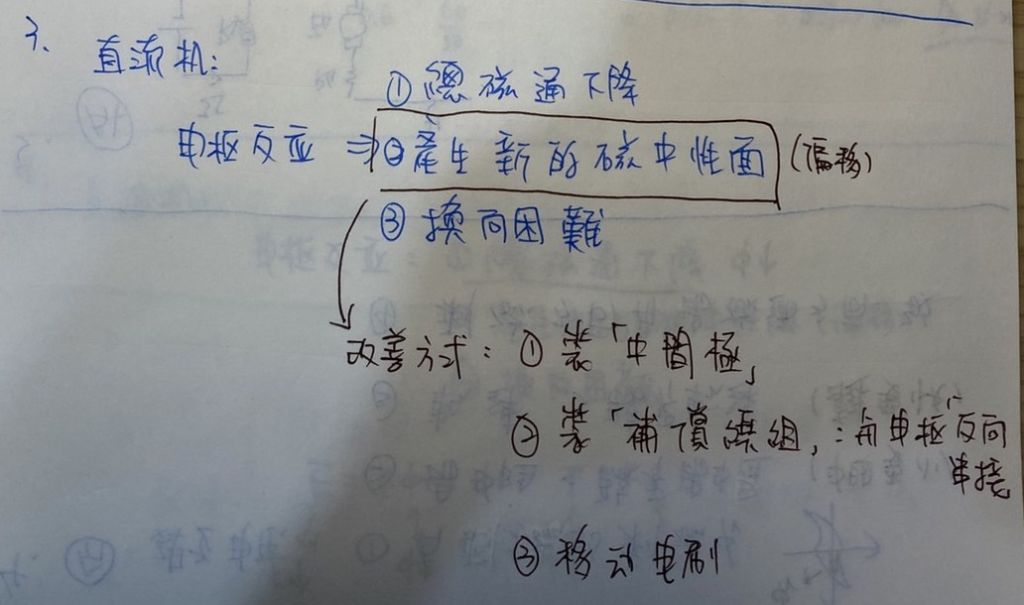 3.
直流机:
①總磁通下降
电枢反应 ⇒ ②產生新的磁中性面 (偏移)
③換向困難
改善方式: ①裝「中間極」
②裝「補償繞組」: 與电枢反向
串接
③移动电刷